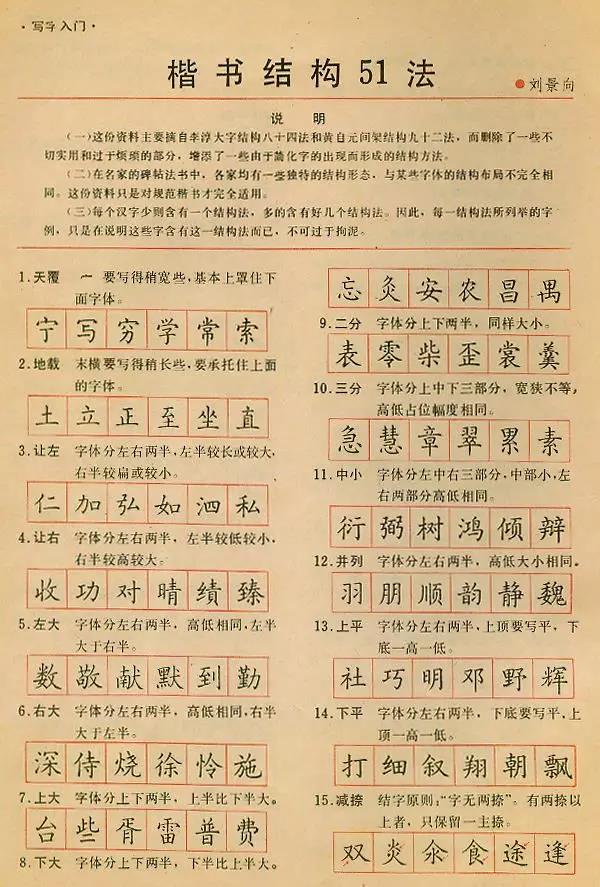 ·写字入门·
楷书结构51法
●刘景向
说 明
(一)这份资料主要摘自李淳大字结构八十四法和黄自元间架结构九十二法,而删除了一些不
切实用和过于烦琐的部分,增添了一些由于简化字的出现而形成的结构方法。
(二)在名家的碑帖法书中,各家均有一些独特的结构形态,与某些字体的结构布局不完全相
同。这份资料只是对规范楷书才完全适用。
(三)每个汉字少则含有一个结构法,多的含有好几个结构法。因此,每一结构法所列举的字
例,只是在说明这些字含有这一结构法而已,不可过于拘泥。
1.天覆 宀 要写得稍宽些,基本上罩住下
面字体。
宁写穷学常索
2.地载 末横要写得稍长些,要承托住上面
的字体。
土立正至坐直
3.让左 字体分左右两半,左半较长或较大,
右半较扁或较小。
仁加弘如泗私
4.让右 字体分左右两半,左半较低较小,
右半较高较大。
收功对晴绩臻
5.左大 字体分左右两半,高低相同,左半
大于右半。
数敬献默到勤
6.右大 字体分左右两半,高低相同,右半
大于左半。
深侍烧徐怜施
7.上大 字体分上下两半,上半比下半大。
台些胥雷普费
8.下大 字体分上下两半,下半比上半大。
忘灸安农昌禺
9.二分 字体分上下两半,同样大小。
表零柴歪裳羹
10.三分 字体分上中下三部分,宽狭不等,
高低占位幅度相同。
急慧章翠累素
11.中小 字体分左中右三部分,中部小,左
右两部分高低相同。
衍弼树鸿倾辩
12.并列 字体分左右两半,高低大小相同。
羽朋顺韵静魏
13.上平 字体分左右两半,上顶要写平,下
底一高一低。
社巧明邓野辉
14.下平 字体分左右两半,下底要写平,上
顶一高一低。
打细叙翔朝飘
15.减捺 结字原则:“字无两捺”。有两捺以
上者,只保留一主捺。
双炎汆食途逢